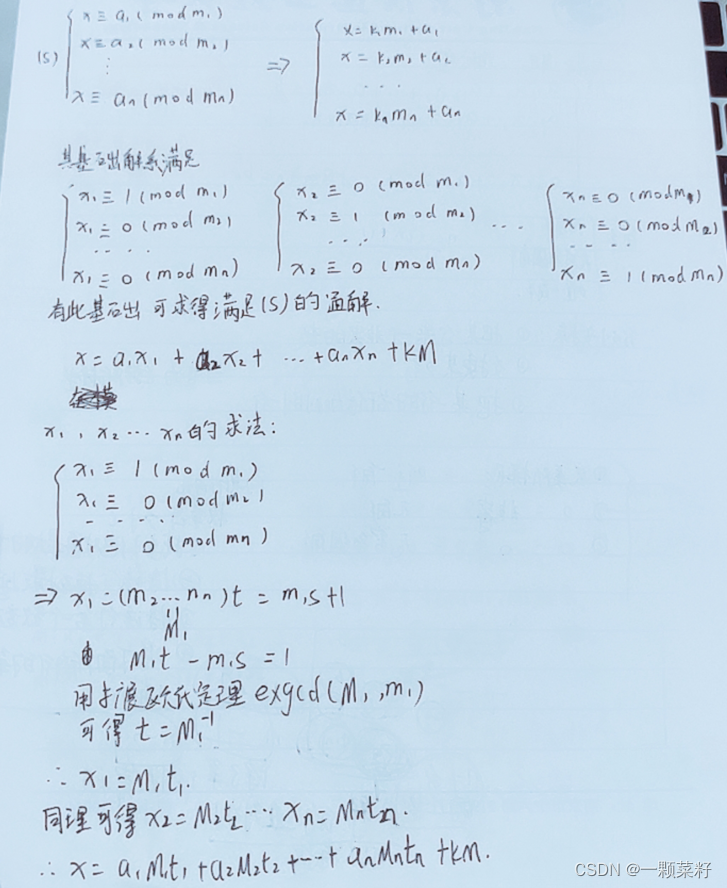 (S) { x ≡ a₁ (mod m₁) x ≡ a₂ (mod m₂) ⋮ x ≡ aₙ (mod mₙ) ⇒ { x = k₁m₁ + a₁ x = k₂m₂ + a₂ ... x = kₙmₙ + aₙ
其基础解系满足
{ x₁ ≡ 1 (mod m₁) x₁ ≡ 0 (mod m₂) .... x₁ ≡ 0 (mod mₙ) { x₂ ≡ 0 (mod m₁) x₂ ≡ 1 (mod m₂) .... x₂ ≡ 0 (mod mₙ) ... { xₙ ≡ 0 (mod m₁) xₙ ≡ 0 (mod m₂) .... xₙ ≡ 1 (mod mₙ)
有此基础可求得满足(S)的通解.
x = a₁x₁ + a₂x₂ + ... + aₙxₙ + kM
x₁, x₂ ... xₙ的求法:
{ x₁ ≡ 1 (mod m₁)
x₁ ≡ 0 (mod m₂)
....
x₁ ≡ 0 (mod mn)
⇒ x₁ = (m₂...nₙ)t = m₁s+1
M₁
M₁t - m₁s = 1
用扩展欧氏定理exgcd(M₁,m₁)
可得 t = M₁⁻¹
∴ x₁ = M₁t₁.
同理可得 x₂ = M₂t₂ ... xₙ = Mₙtₙ.
∴ x = a₁M₁t₁ + a₂M₂t₂ + ... + aₙMₙtₙ + kM.
CSDN @一颗菜籽